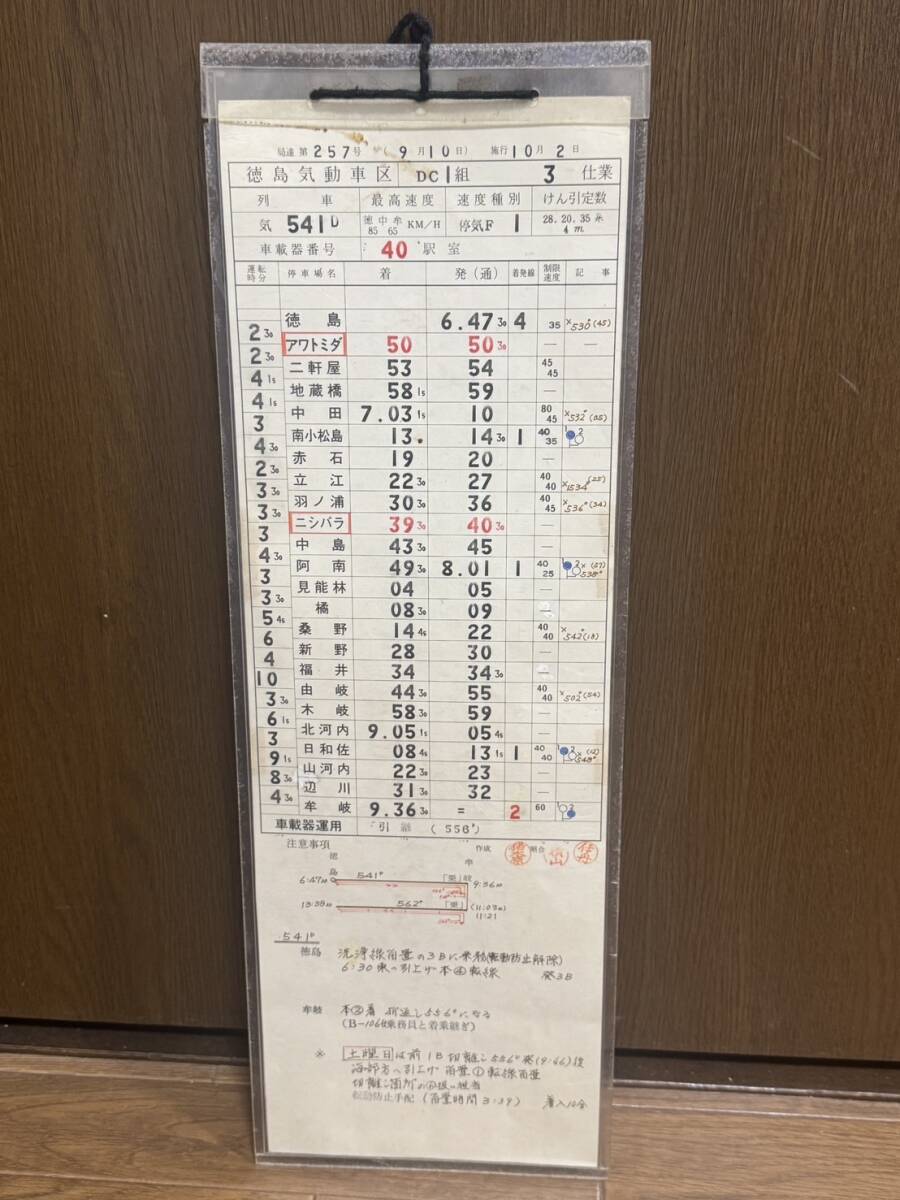 局達第257号 (9月10日) 施行10月2日
徳島気動車区 DC1組 3 仕業
列車 最高速度 速度種別 けん引定数
気 541D 徳中牟 85 65 KM/H 停気F 1 28.20.35 4m
車載器番号 40 駅室
運転時分 停車場名 着 発(通) 着発線 制限速度 記事
徳島 6.47 30 4 35 ×530D(45)
2 30
アワトミダ 50 50 30 — —
2 30
二軒屋 53 54 45 45
4 15
地蔵橋 58 15 59 —
4 15
中田 7.03 15 10 80 45 ×532D
3
南小松島 13 14 30 1 40 35 1 2
4 30
赤石 19 20 —
2 30
立江 22 30 27 40 40 (25)
3 30
羽ノ浦 30 30 36 40 45 ×536D(34)
3 30
ニシバラ 39 30 40 30 —
3
中島 43 30 45 —
4 30
阿南 49 30 8.01 1 40 25 1 2 ×(57) 538D
3
見能林 04 05
3 30
橘 08 30 09 —
5 45
桑野 14 45 22 40 40 ×542D(18)
6
新野 28 30 —
4
福井 34 34 30 —
10
由岐 44 30 55 40 40 ×502D(54)
3 30
木岐 58 30 59 —
6 15
北河内 9.05 15 05 45 —
3
日和佐 08 45 13 15 1 40 40 1 2 ×(12)
9 15
山河内 22 30 23 —
8 30
辺川 31 30 32 —
4 30
牟岐 9.36 30 = 2 60 1 2
車載器運用 引継 (556D)
注意事項 作成 照合
徳島 牟岐
6:47 30 541D 「乗」 9:36 30
13:38 562D 「乗」 (11:03) 11:21
541D
徳島 洗浄線留置の3Bに乗務(転動防止解除)
6:30 東へ引上げ本④転線 発3B
牟岐 本②着 折返し556Dになる
(B-106仕乗務員と着乗継ぎ)
※ 土曜日は前1B切離し556D発(9:46)後
海部方へ引上げ 留置①転線留置
転動防止手配 (留置時間3:39)